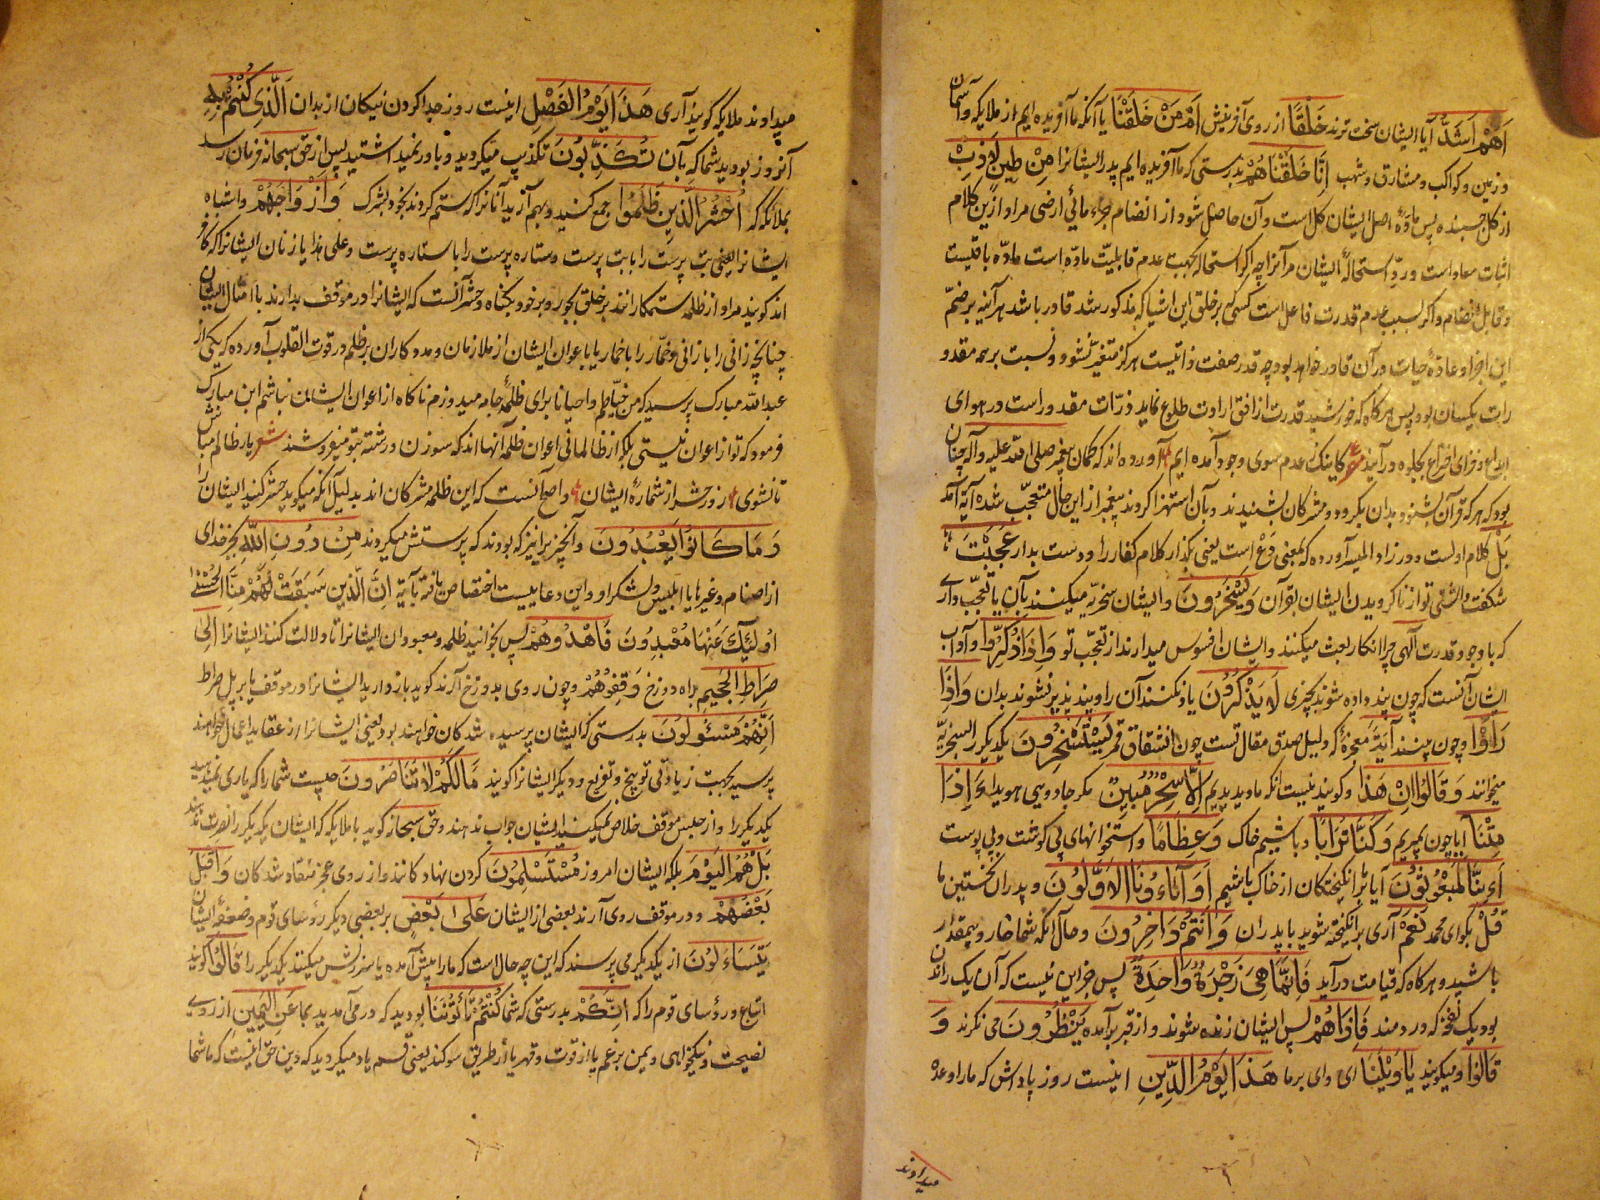 اَهُمْ اَشَدُّ آیا ایشان سخت ترند خَلْقًا از روی آفرینش اَمْ مَنْ خَلَقْنَا یا آنکه ما آفریده ایم از ملایکه و آسمان
و زمین و کواکب و مشارق و شهب اِنَّا خَلَقْنَاهُمْ بدرستی که ما آفریده ایم پدر ایشانرا مِنْ طِینٍ لَازِبٍ
از کل چسبنده پس ماده اصل ایشان کل است و آن حاصل شود از انضمام جزء مائی ارضی مراد ازین کلام
اثبات معاد است و رد استحالهٔ ایشان مر آنرا چه اگر استحاله بجهت عدم قابلیت ماده است ماده باقیست
و قابل انضمام و اگر بسبب عدم قدرت فاعل است کسی که بر خلق این اشیا که مذکور شد قادر باشد هر آینه بر ضم
این اجزا و اعادهٔ حیات در آن قادر خواهد بود چه قدر صفت ذاتیست هرگز متغیر نشود و نسبت بر همه مقدو
رات یکسان بود پس هرگاه که خورشید قدرت از افق ارادت طلوع نماید ذرات مقدورات در هوای
ابداع و فرای اختراع بجلوه در آیند ع کاینک ز عدم سوی وجود آمده ایم آورده اند که کمان پیغمبر صلی الله علیه وآله چنان
بود که هر که قرآن بشنود بدان بگرود و مشرکان بشنیدند و بآن استهزا کردند پیغمبر از این حال متعجب شده آیة آمد
بَلْ کلام اولست و در زاد المسیر آورده که بمعنی دَعْ است یعنی بگذار کلام کفار را و دست بدار عَجِبْتَ
شگفت داشتی تو از ناگرویدن ایشان بقرآن وَیَسْخَرُونَ و ایشان سخریه میکنند بآن یا تعجب داری
که با وجود قدرت الهی چرا انکار بعث میکنند و ایشان افسوس میدارند از تعجب تو وَاِذَا ذُکِّرُوا و آداب
ایشان آنست که چون پند داده شوند بچیزی لَا یَذْکُرُونَ یاد نکنند آن را و پند پذیر نشوند بدان وَاِذَا
رَاَوْا و چون بینند اٰیَةً معجزهٔ که دلیل صدق مقال تست چون انشقاق قمر یَسْتَسْخِرُونَ یکدیگر را بسخریه
میخوانند وَقَالُوا اِنْ هٰذَا و گویند نیست آنکه ما دیدیم اِلَّا سِحْرٌ مُبِینٌ مگر جادویی هویدا ءَاِذَا
مِتْنَا ایا چون بمیریم وَکُنَّا تُرَابًا و باشیم خاک وَعِظَامًا و استخوانهای بی گوشت و بی پوست
اَءِنَّا لَمَبْعُوثُونَ آیا برانگیختگان از خاک باشیم اَوَ اٰبَاؤُنَا الْاَوَّلُونَ و پدران نخستین ما
قُلْ بگو ای محمد نَعَمْ آری برانگیخته شوید با پدران وَاَنْتُمْ دَاخِرُونَ و حال آنکه شما خار و بیمقدار
باشید و هرگاه که قیامت درآید فَاِنَّمَا هِیَ زَجْرَةٌ وَاحِدَةٌ پس جز این نیست که آن یک راندن
بود یک نفخه که در دمند فَاِذَا هُمْ پس ایشان زنده شوند و از قبر برآمده یَنْظُرُونَ می نگرند وَ
قَالُوا و میگویند یَا وَیْلَنَا ای وای بر ما هٰذَا یَوْمُ الدِّینِ اینست روز پاداش که ما را وعده
میدادند
میدادند ملایکه گویند آری هٰذَا یَوْمُ الْفَصْلِ اینست روز جدا کردن نیکان از بدان الَّذِی کُنْتُمْ بِهِ
آنروز بودید شما که بآن تُکَذِّبُونَ تکذیب میکردید و باور نمیداشتید پس از حق سبحانه فرمان رسد
بملائکه که اُحْشُرُوا الَّذِینَ ظَلَمُوا جمع کنید و بهم آرید آنانرا که ستم کردند بخود بشرک وَاَزْوَاجَهُمْ و اشباه
ایشانرا یعنی بت پرست را با بت پرست و ستاره پرست را با ستاره پرست و علی هذا یا زنان ایشانرا که کافر
اند گویند مراد از ظلمه ستمکارانند بر خلق بجور و بر خود بگناه و حشر آنست که ایشانرا در موقف بدارند با امثال ایشان
چنانچه زانی را با زانی و خمار را با خمار یا با عوان ایشان از ملازمان و مددکاران بر ظلم در قوت القلوب آورده که یکی از
عبدالله مبارک پرسید که من خیاطم و احیانا برای ظلمه جامه میدوزم ناگاه از اعوان ایشان نباشم ابن مبارک
فرمود که تو از اعوان نیستی بلکه از ظالمانی اعوان ظلمه آنها اند که سوزن و رشته بتو میفروشند شعر یار ظالم مباش
تا نشوی روز حشر از شمارهٔ ایشان و اصح آنست که این ظلمه مشرکان اند بدلیل آنکه میگوید حشر کنید ایشان را
وَمَا کَانُوا یَعْبُدُونَ و آنچیز را نیز که بودند که پرستش میکردند مِنْ دُونِ اللّٰهِ بجز خدای
از اصنام و غیرها یا ابلیس و لشکر او و این دعا بیست اختصاص یافته بآیة اِنَّ الَّذِینَ سَبَقَتْ لَهُمْ مِنَّا الْحُسْنٰی
اُولٰئِكَ عَنْهَا مُبْعَدُونَ فَاهْدُوهُمْ پس بخوانید ظلمه و معبودان ایشانرا تا دلالت کنند ایشانرا اِلٰی
صِرَاطِ الْجَحِیمِ براه دوزخ وَقِفُوهُمْ و چون روی بدوزخ آرند گوید بازدارید ایشانرا در موقف یا بر پل صراط
اِنَّهُمْ مَسْئُولُونَ بدرستی که ایشان پرسیده شدگان خواهند بود یعنی ایشانرا از عقاید اعمال خواهند
پرسید بجهت زیادتی توبیخ و تقریع و دیگر ایشانرا گویند مَا لَکُمْ لَا تَنَاصَرُونَ چیست شما را که یاری نمیدهید
یکدیگر را و از حبس موقف خلاص نمیکنید ایشان جواب ندهند و حق سبحانه گوید با ملایکه که ایشان یکدیگر را نصرت ندهند
بَلْ هُمُ الْیَوْمَ بلکه ایشان امروز مُسْتَسْلِمُونَ گردن نهادگانند و از روی عجز منقاد شدگان وَاَقْبَلَ
بَعْضُهُمْ و در موقف روی آرند بعضی از ایشان عَلٰی بَعْضٍ بر بعضی دیگر رؤسای قوم و ضعفهٔ ایشان
یَتَسَاءَلُونَ از یکدیگر می پرسند که این چه حال است که ما را پیش آمده یا سرزنش میکنند یکدیگر را قَالُوا گویند
اتباع و رؤسای قوم را که اِنَّکُمْ بدرستی که شما کُنْتُمْ تَأْتُونَنَا بودید که در می آمدید بما عَنِ الْیَمِینِ از روی
نصیحت و نیکخواهی و یمن بزعم یا از قوت و قهر یا از طریق سوگند یعنی قسم یاد میکردید که دین حق اینست که ما شما